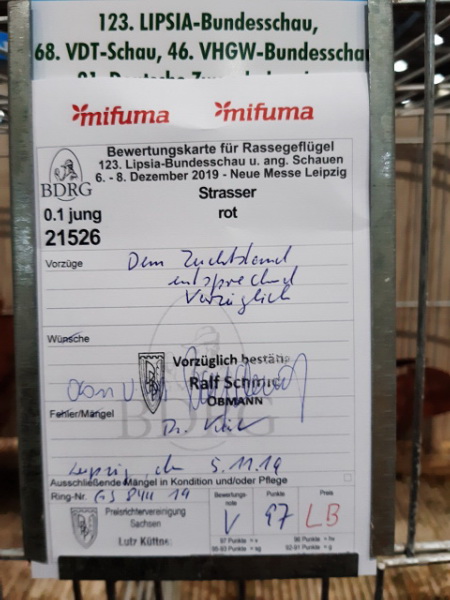 123. LIPSIA-Bundesschau,
68. VDT-Schau, 46. VHGW-Bundesschau
mifuma mifuma
Bewertungskarte für Rassegeflügel
123. Lipsia-Bundesschau u. ang. Schauen
6. - 8. Dezember 2019 - Neue Messe Leipzig
BDRG
Strasser
0.1 jung rot
21526
Vorzüge Dem Zuchtstand
entsprechend
Vorzüglich
Wünsche
Vorzüglich bestätigt
Ralf Schmid
OBMANN
Fehler/Mängel
Dr.
Leipzig, den 5.11.19
Ausschließende Mängel in Kondition und/oder Pflege
Ring-Nr. 19
Preisrichtervereinigung
Sachsen
Lutz Küttner
Bewertungs-
note Punkte Preis
V 97 LB
97 Punkte = v 96 Punkte = hv